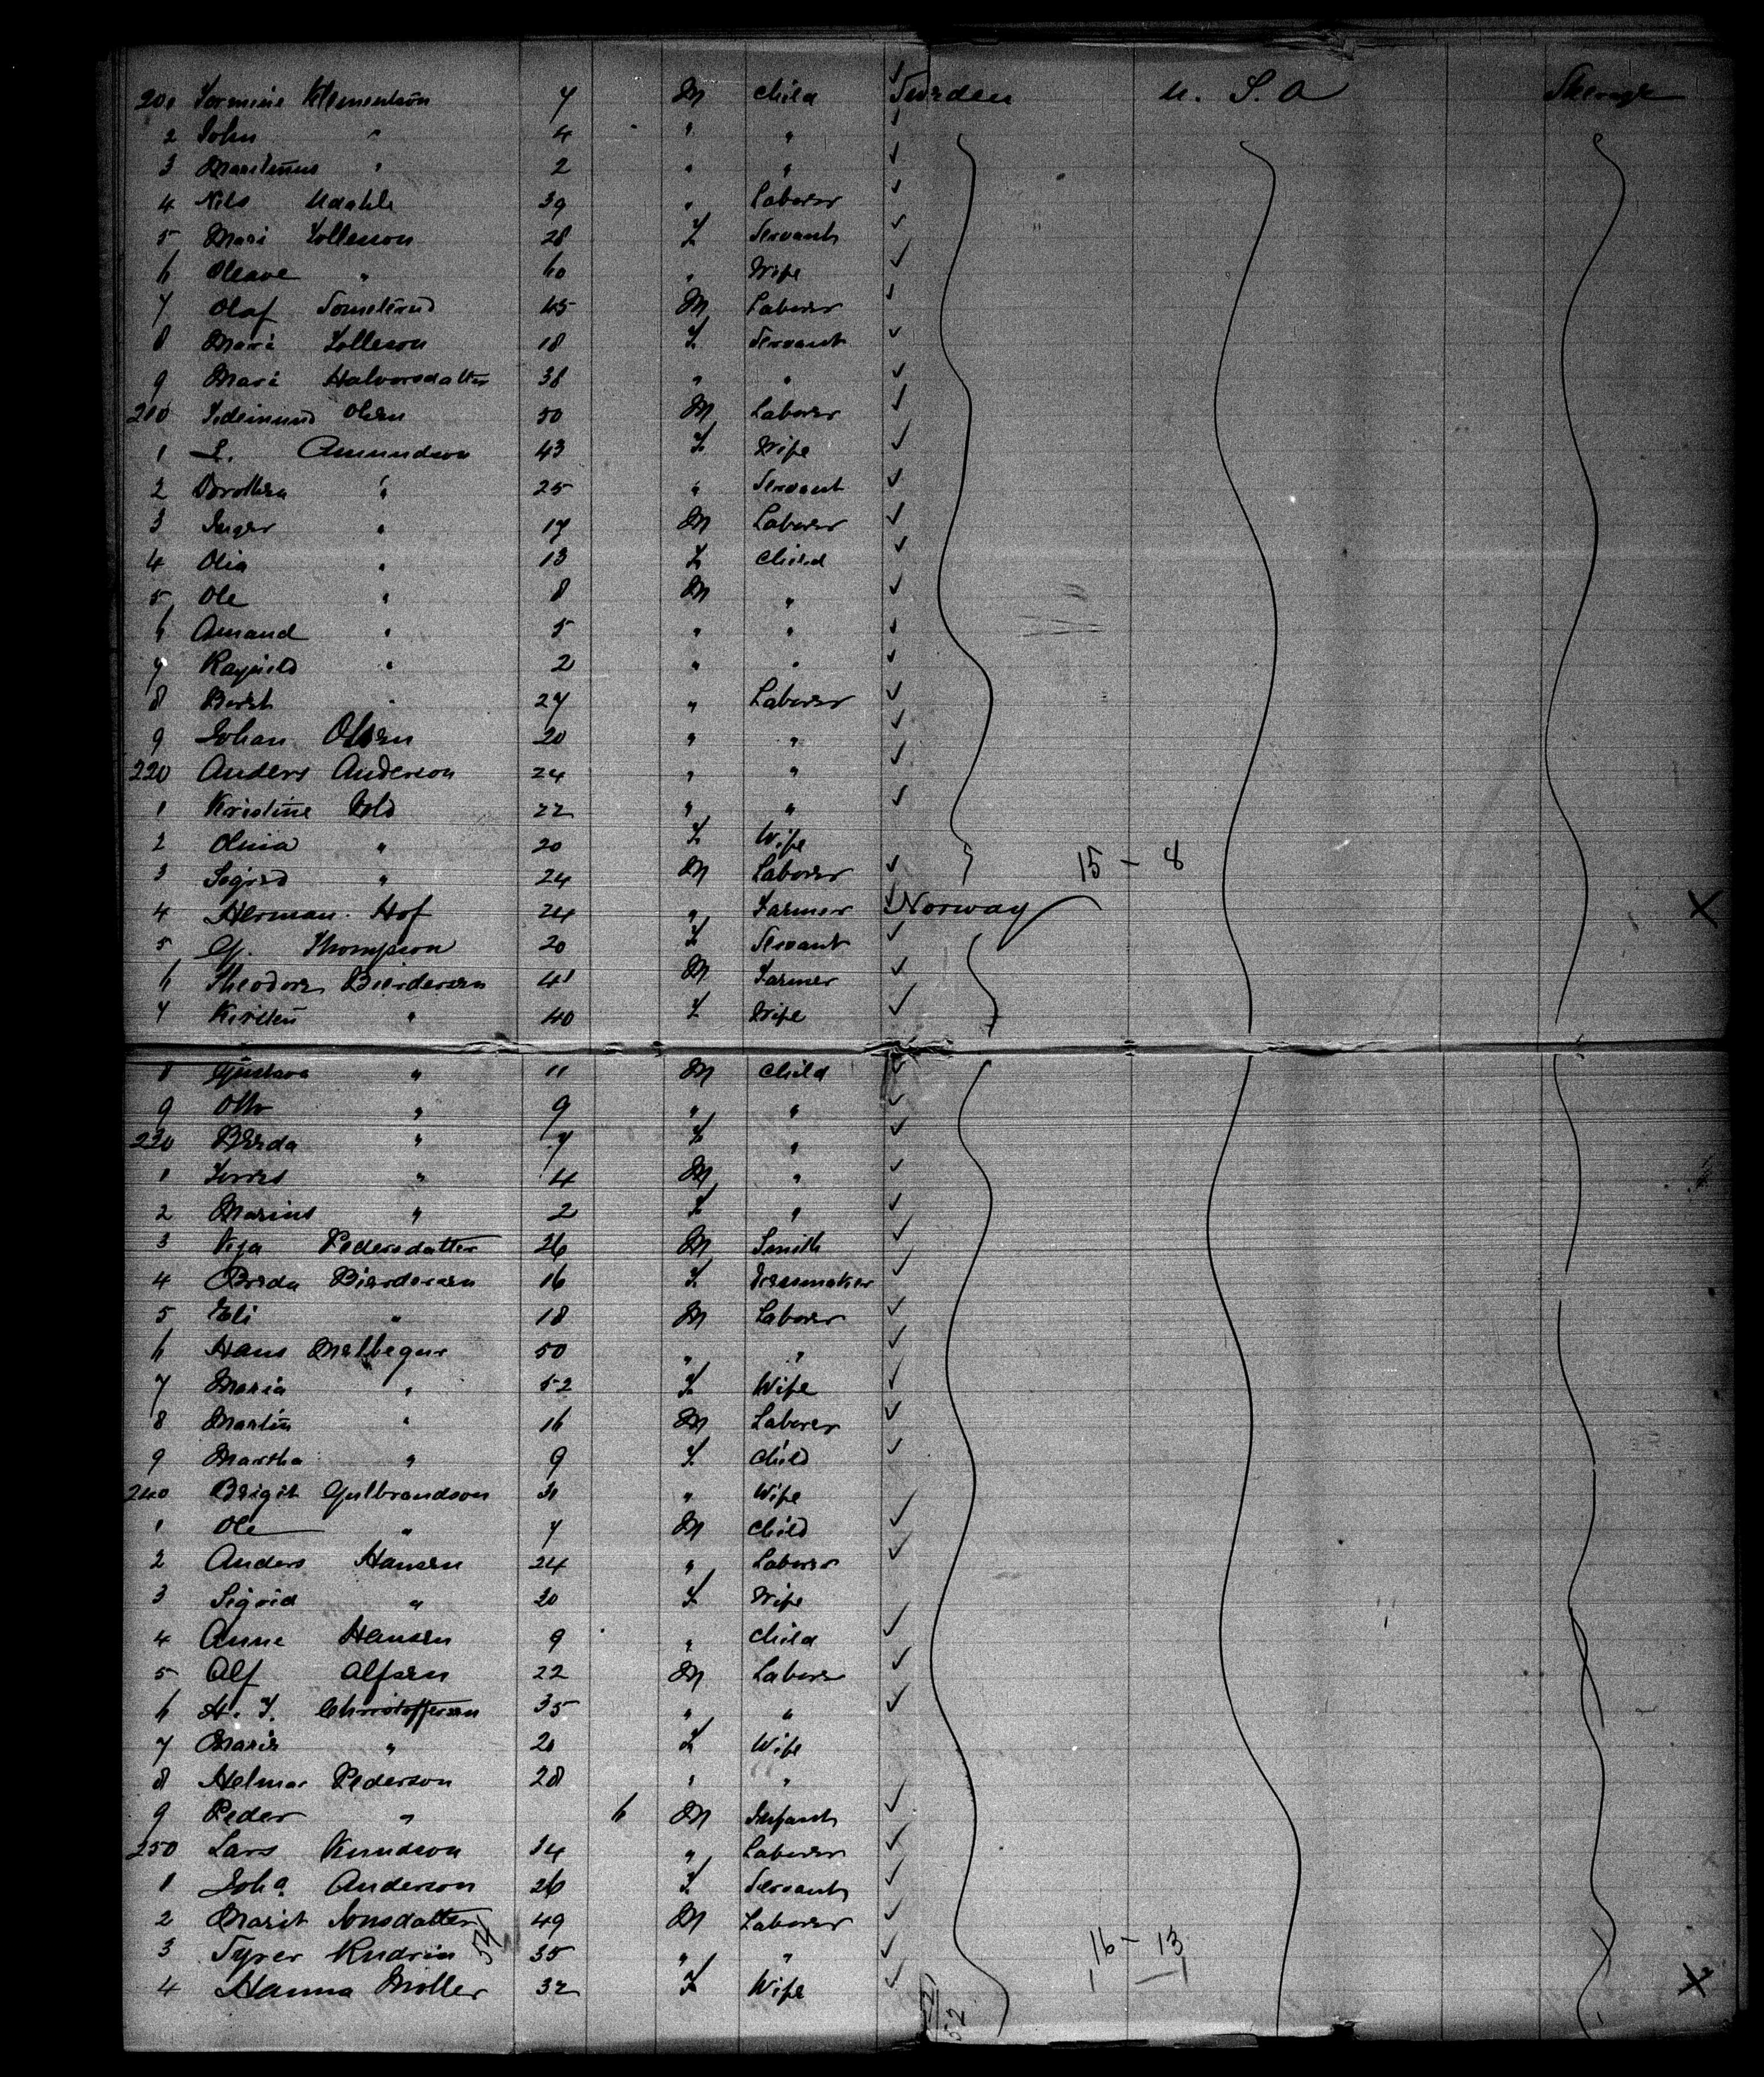 201 Klementson 7 M Child Sweden U. S. A Steerage
2 John " 4 " "
3 Martinus " 2 " "
4 Nils Udahl 39 " Laborer
5 Mari Tolleson 28 F Servant
6 Oleave " 60 " Wife
7 Olaf 45 M Laborer
8 Mari Tolleson 18 F Servant
9 Mari Halvorsdatter 38 " "
210 Olsen 50 M Laborer
1 L. Amundson 43 F Wife
2 Dorothea " 25 " Servant
3 Inger " 17 M Laborer
4 Olia " 13 F Child
5 Ole " 8 M "
6 Amand " 5 " "
7 Ragnild " 2 " "
8 Berit " 27 " Laborer
9 Johan Olsen 20 " "
220 Anders Anderson 24 " "
1 Kristine Vold 22 " "
2 Olina " 20 F Wife
3 Sigrid " 24 M Laborer 15 - 8
4 Herman Hof 24 " Farmer Norway X
5 G. Thompson 20 F Servant
6 Theodore Bierdersen 41 M Farmer
7 Kirsten " 40 F Wife
8 Gustava " 11 M Child
9 Otto " 9 " "
230 Berda " 7 F "
1 " 4 M "
2 Marius " 2 F "
3 Pedersdatter 26 M Smith
4 Berda Bierdersen 16 F Dressmaker
5 Eli " 18 M Laborer
6 Hans 50 " "
7 Maria " 52 F Wife
8 Martin " 16 M Laborer
9 Martha " 9 F Child
240 Brigit Gulbrandson 31 " Wife
1 Ole " 7 M Child
2 Anders Hansen 24 " Laborer
3 Sigrid " 20 F Wife
4 Anne Hansen 9 " Child
5 Alf Alfsen 22 M Laborer
6 H. F. Christoffersen 35 " "
7 Marie " 20 F Wife
8 Helmar Pederson 28 " "
9 Peder " 6 M Infant
250 Lars Knudson 34 " Laborer
1 Joha Anderson 26 F Servant
2 Marit Jonsdatter 49 M Laborer
3 35 " " 16 - 13
4 Hanna Moller 32 F Wife X